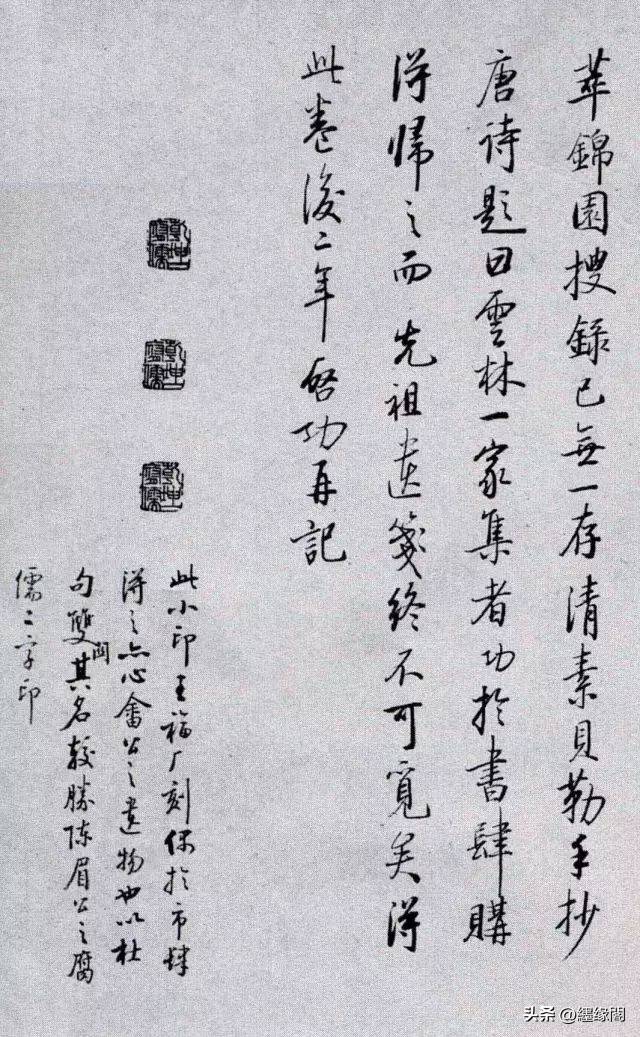 萃錦園搜録已無一存清素貝勒手抄
唐詩題曰雲林一家集者功於書肆購
得歸之而先祖遺箋終不可覓矣得
此卷後二年啓功再記
此小印王福厂刻偶於市肆
得之亦心畬公之遺物也以杜
句雙関其名較勝陳眉公之腐
儒二字印
头条 @繮缘閣